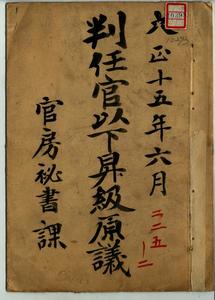 大正十五年六月
判任官以下昇級原議
官房秘書課
二二五
|二